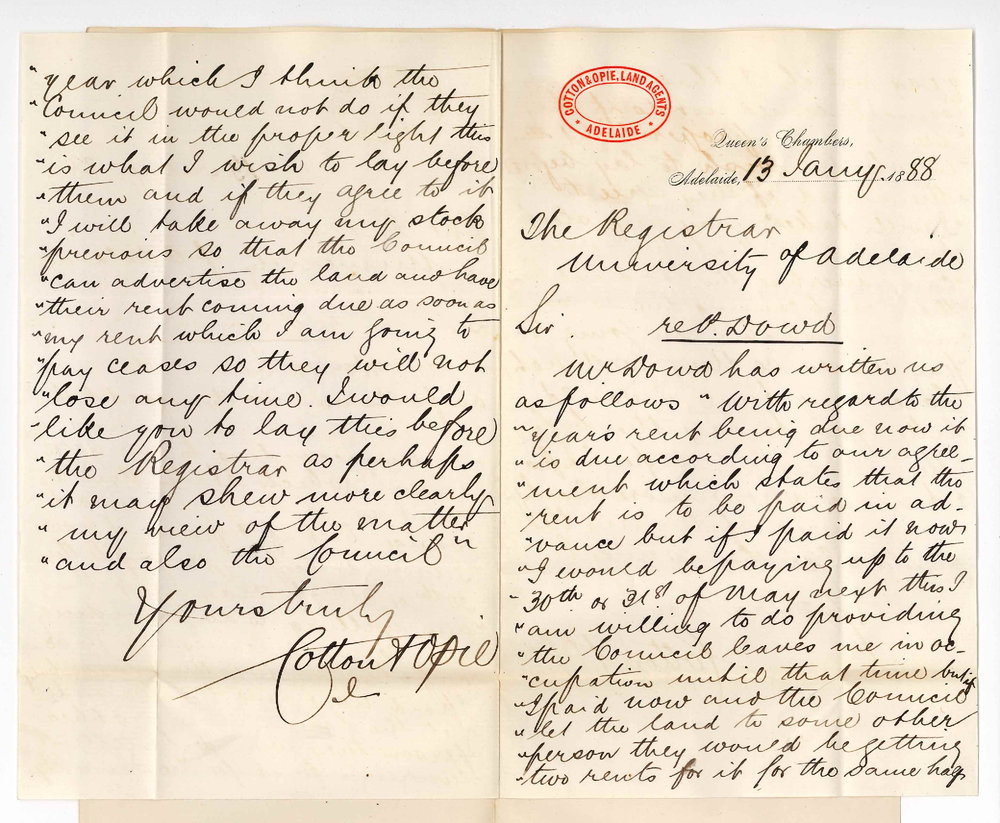 COTTON & OPIE, LAND AGENTS
* ADELAIDE *
Queen's Chambers,
Adelaide, 13 Jany. 1888
The Registrar
University of Adelaide
Sir
re P. Dowd
Mr Dowd has written us
as follows "With regard to the
"year's rent being due now it
"is due according to our agree-
"ment which states that the
"rent is to be paid in ad-
"vance but if I paid it now
"I would be paying up to the
"30th or 31st of May next this I
"am willing to do providing
"the Council leaves me in oc-
"cupation until that time but if
"I paid now and the Council
"let the land to some other
"person they would be getting
"two rents for it for the same half
"year which I think the
"Council would not do if they
"see it in the proper light this
"is what I wish to lay before
"them and if they agree to it
"I will take away my stock
"previous so that the Council
"can advertise the land and have
"their rent coming due as soon as
"my rent which I am going to
"pay ceases so they will not
"lose any time. I would
"like you to lay this before
"the Registrar as perhaps
"it may shew more clearly
"my view of the matter
"and also the Council"
Yours truly
Cotton & Opie